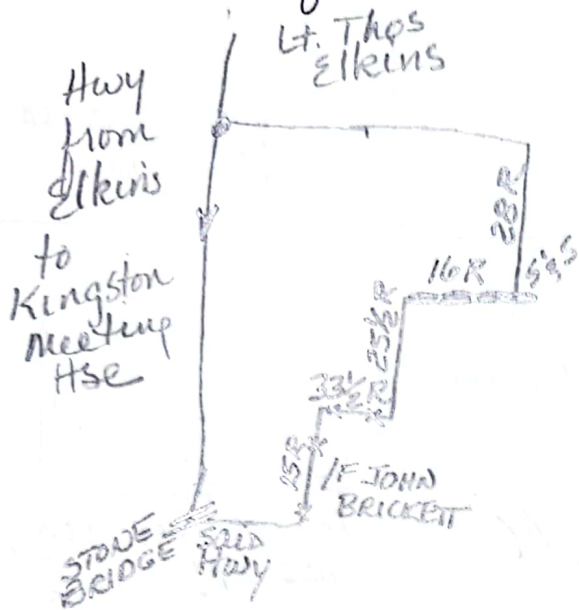 Lt. Thos
Elkins
Hwy
from
Elkins
to
Kingston
Meeting
Hse
28 R
16 R
S&S
25½ R
33½
R
25 R
/F JOHN
BRICKETT
STONE
BRIDGE
SAID
HWY